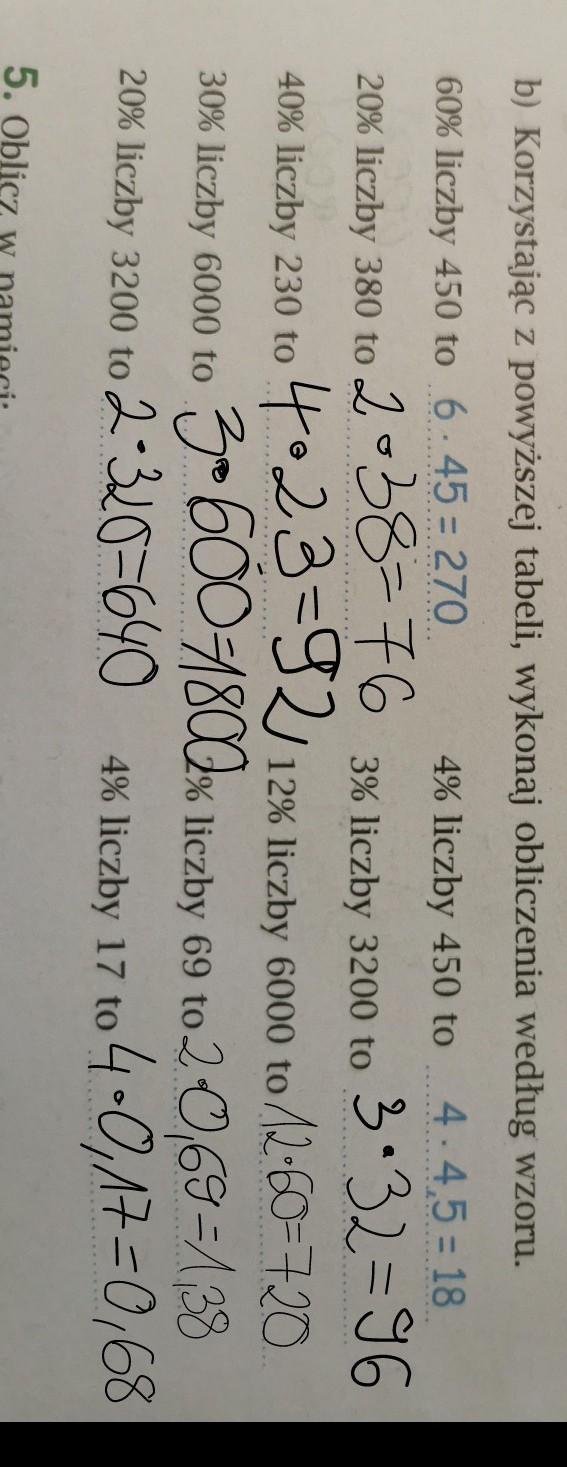 b) Korzystając z powyższej tabeli, wykonaj obliczenia według wzoru.
60% liczby 450 to 6 · 45 = 270 4% liczby 450 to 4 · 4,5 = 18
20% liczby 380 to 2·38=76 3% liczby 3200 to 3·32=96
40% liczby 230 to 4·23=92 12% liczby 6000 to 12·60=720
30% liczby 6000 to 3·600=1800 2% liczby 69 to 2·0,69=1,38
20% liczby 3200 to 2·320=640 4% liczby 17 to 4·0,17=0,68
5. Oblicz w pamięci: